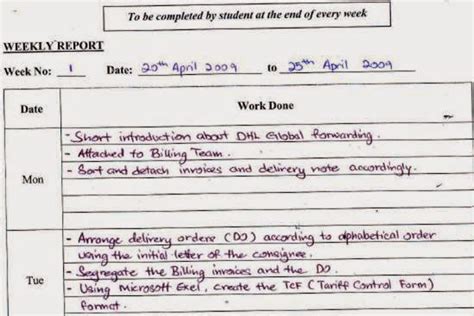 To be completed by student at the end of every week
WEEKLY REPORT
Week No: 1 Date: 20th April 2009 to 25th April 2009
Date Work Done
- Short introduction about DHL Global forwarding.
- Attached to Billing Team.
Mon
- Sort and detach invoices and delivery note accordingly.
- Arrange delivery orders (DO) according to alphabetical order
using the initial letter of the consignee.
Tue
- Segregate the Billing invoices and the DO.
- Using Microsoft Exel, create the TCF (Tariff Control Form)
format.